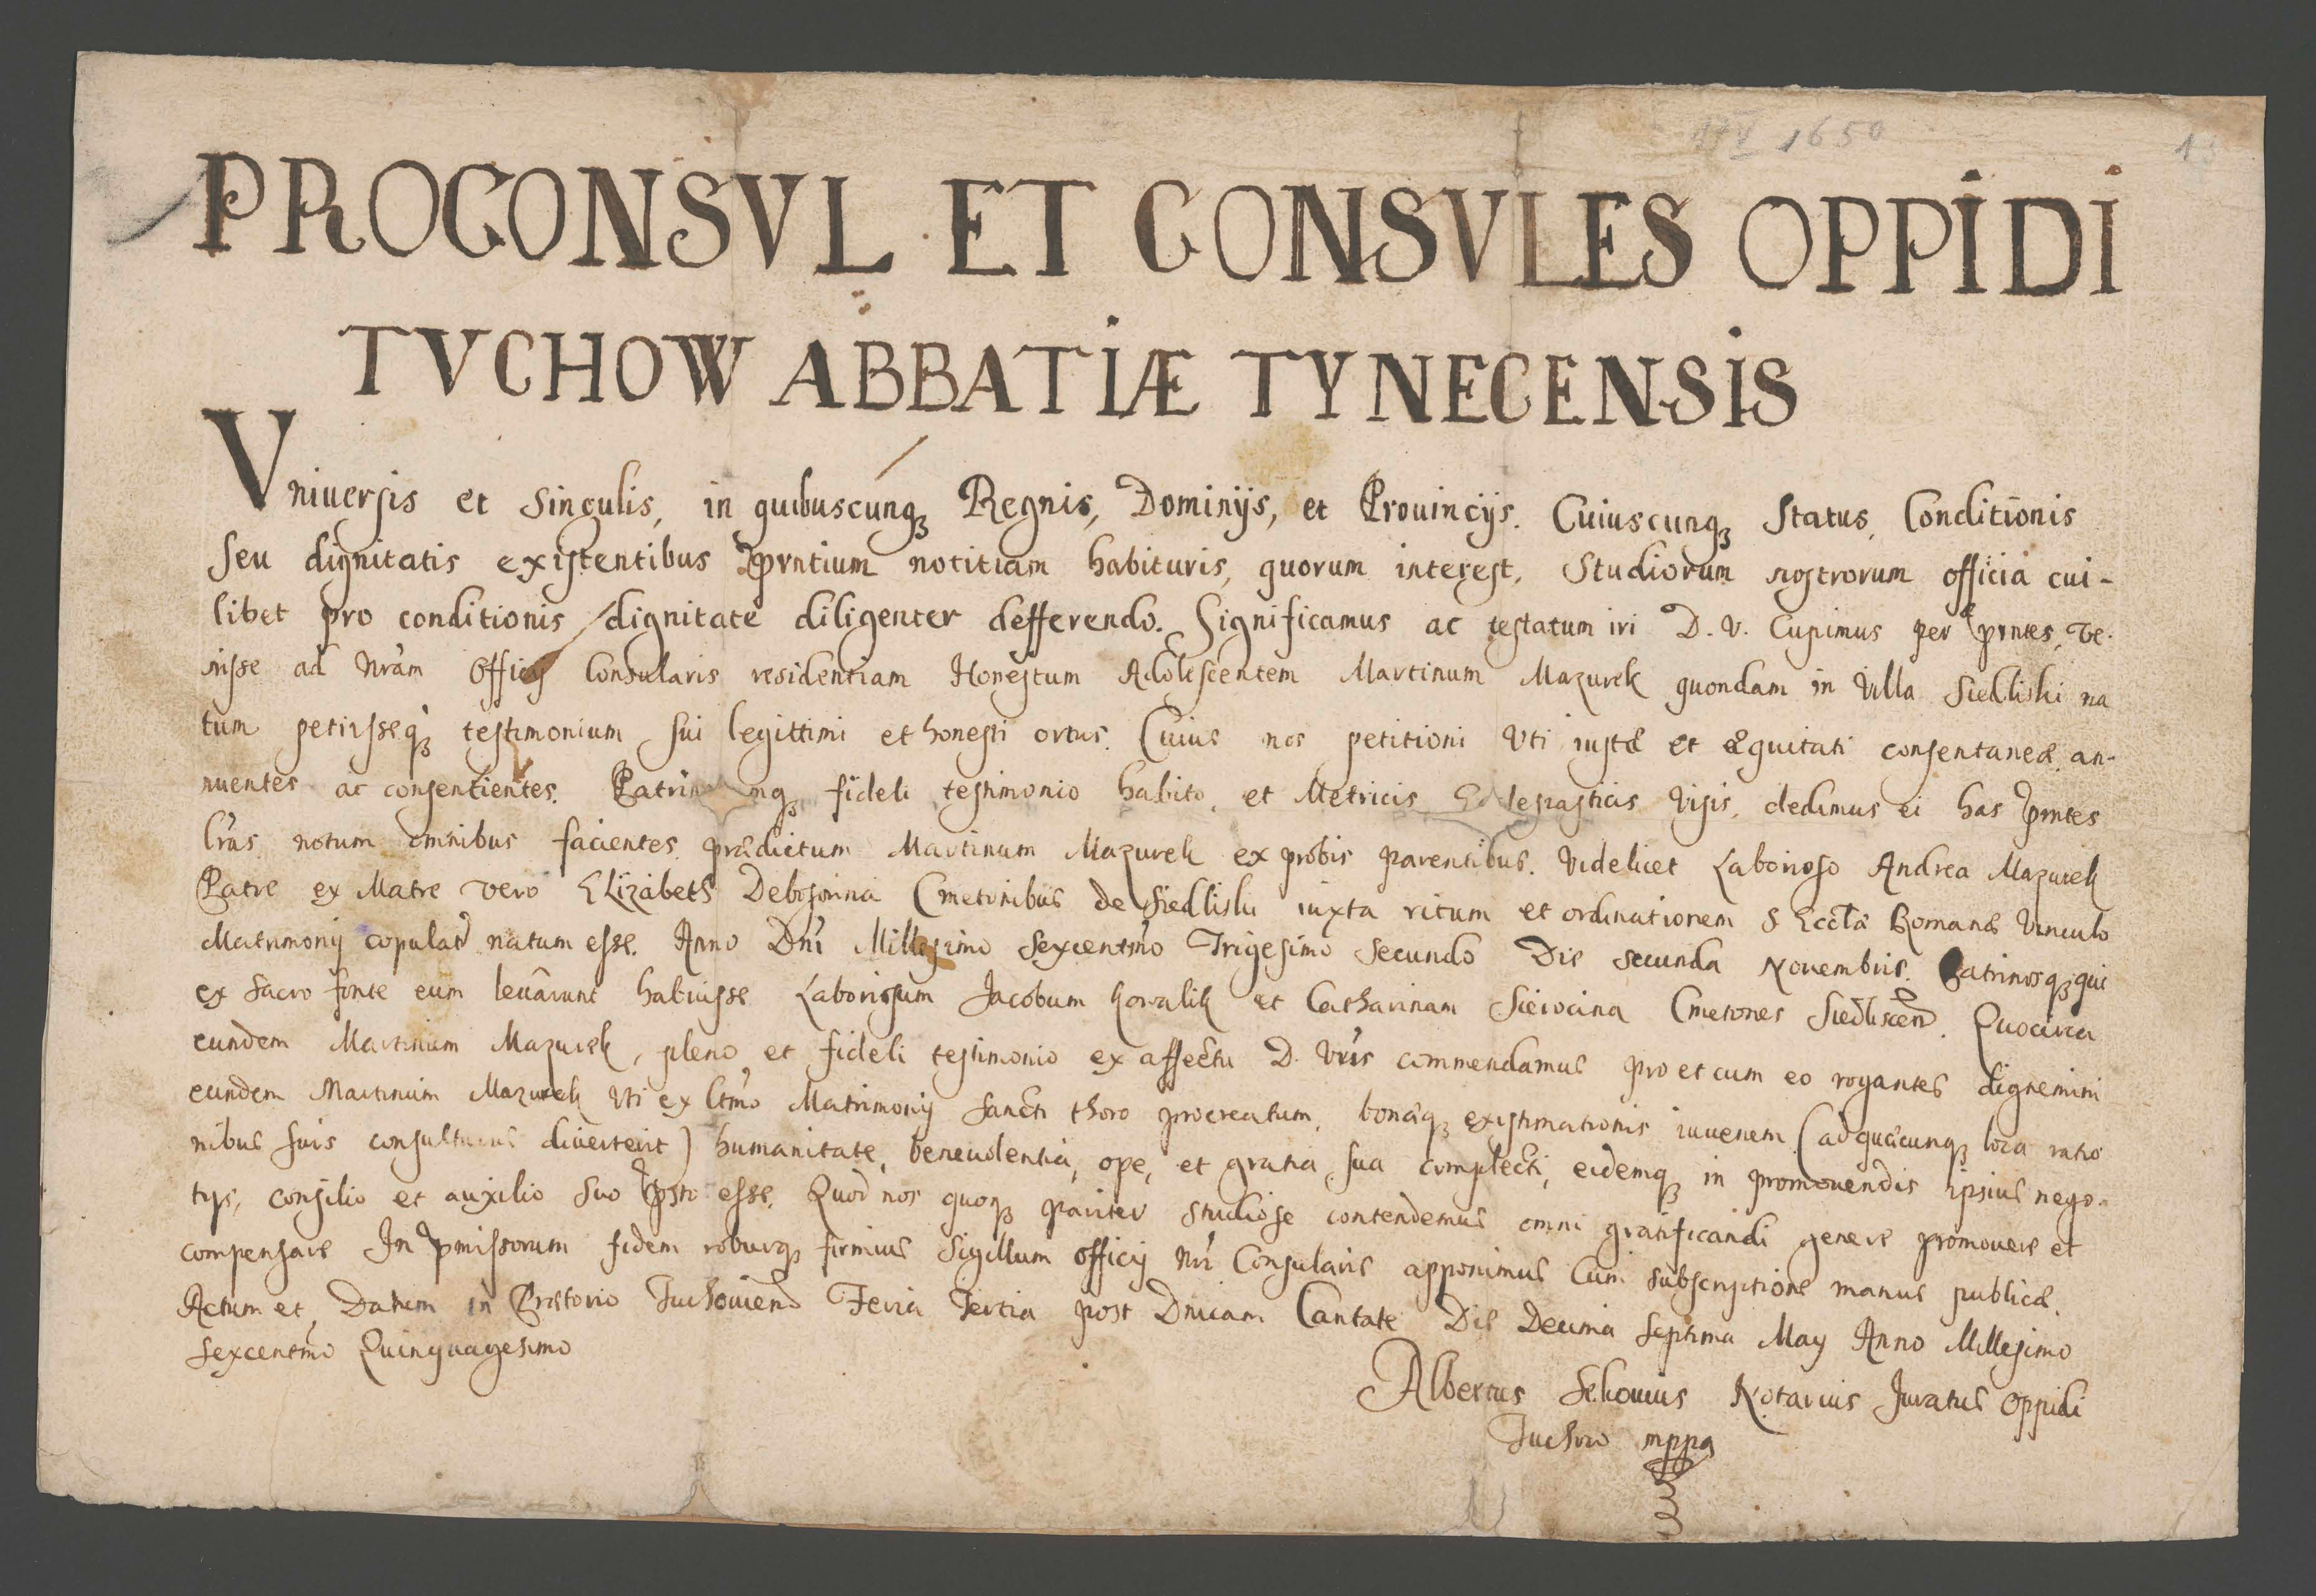 17 V 1650
13
PROCONSVL ET CONSVLES OPPIDI
TVCHOW ABBATIÆ TYNECENSIS
Vniuersis et Singulis, in quibuscunqꝫ Regnis, Dominijs, et Prouincijs. Cuiuscunqꝫ Status, Conditionis
seu dignitatis existentibus prntium notitiam habituris, quorum interest, Studiorum nostrorum officia cui-
libet pro conditionis dignitate diligenter defferendo. Significamus ac testatum iri D. V. Cupimus per prntes, Ve-
nisse ad Nram Officij Consularis residentiam Honestum Adolescentem Martinum Mazurek quondam in Villa Siedliski na
tum petijsseqꝫ testimonium sui legittimi et honesti ortus. Cuius nos petitioni Vti iustæ et æquitati consentaneæ, an-
nuentes ac consentientes. fideli testimonio habito, et Metricis Ecclesiasticis Visis, dedimus ei has prntes
lras notum omnibus facientes prædictum Martinum Mazurek ex probis parentibus. Videlicet Laborioso Andrea Mazurek
Patre ex Matre vero Elizabeth Cmetonibus de Siedliski iuxta ritum et ordinationem S Eccla Romanæ Vinculo
Matrimonij copulat natum esse. Anno Dni Millesimo Sexcentmo Trigesimo Secundo Die secunda Novembris. Patrinosqꝫ qui
ex Sacro fonte eum levârunt habuisse Laboriosum Jacobum Kowalik et Catharinam Cmetones Siedliscen. Quocirca
eundem Martinum Mazurek, pleno et fideli testimonio ex affectu D. Vris commendamus pro et cum eo rogantes dignemini
eundem Martinum Mazurek Vti ex ltmo Matrimonij sancti thoro procreatum, bonæqꝫ existimationis iuvenem (ad quæcunqꝫ loca ratio
nibus suis consulturus diverterit) humanitate, benevolentia, ope, et gratia sua complecti, eidemqꝫ in promovendis ipsius nego-
tijs, consilio et auxilio suo psto esse. Quod nos quoqꝫ pariter studiose contendemus omni gratificandi genere promovere et
compensare In pmissorum fidem roburqꝫ firmius Sigillum officij nri Consularis apponimus Cum subscriptione manus publicæ.
Actum et Datum in Prætorio Tuchovien Feria Tertia post Dnicam Cantate Die Decima Septima May Anno Millesimo
Sexcentmo Quinquagesimo
Albertus Notarius Juratus Oppidi
Tuchow mppa